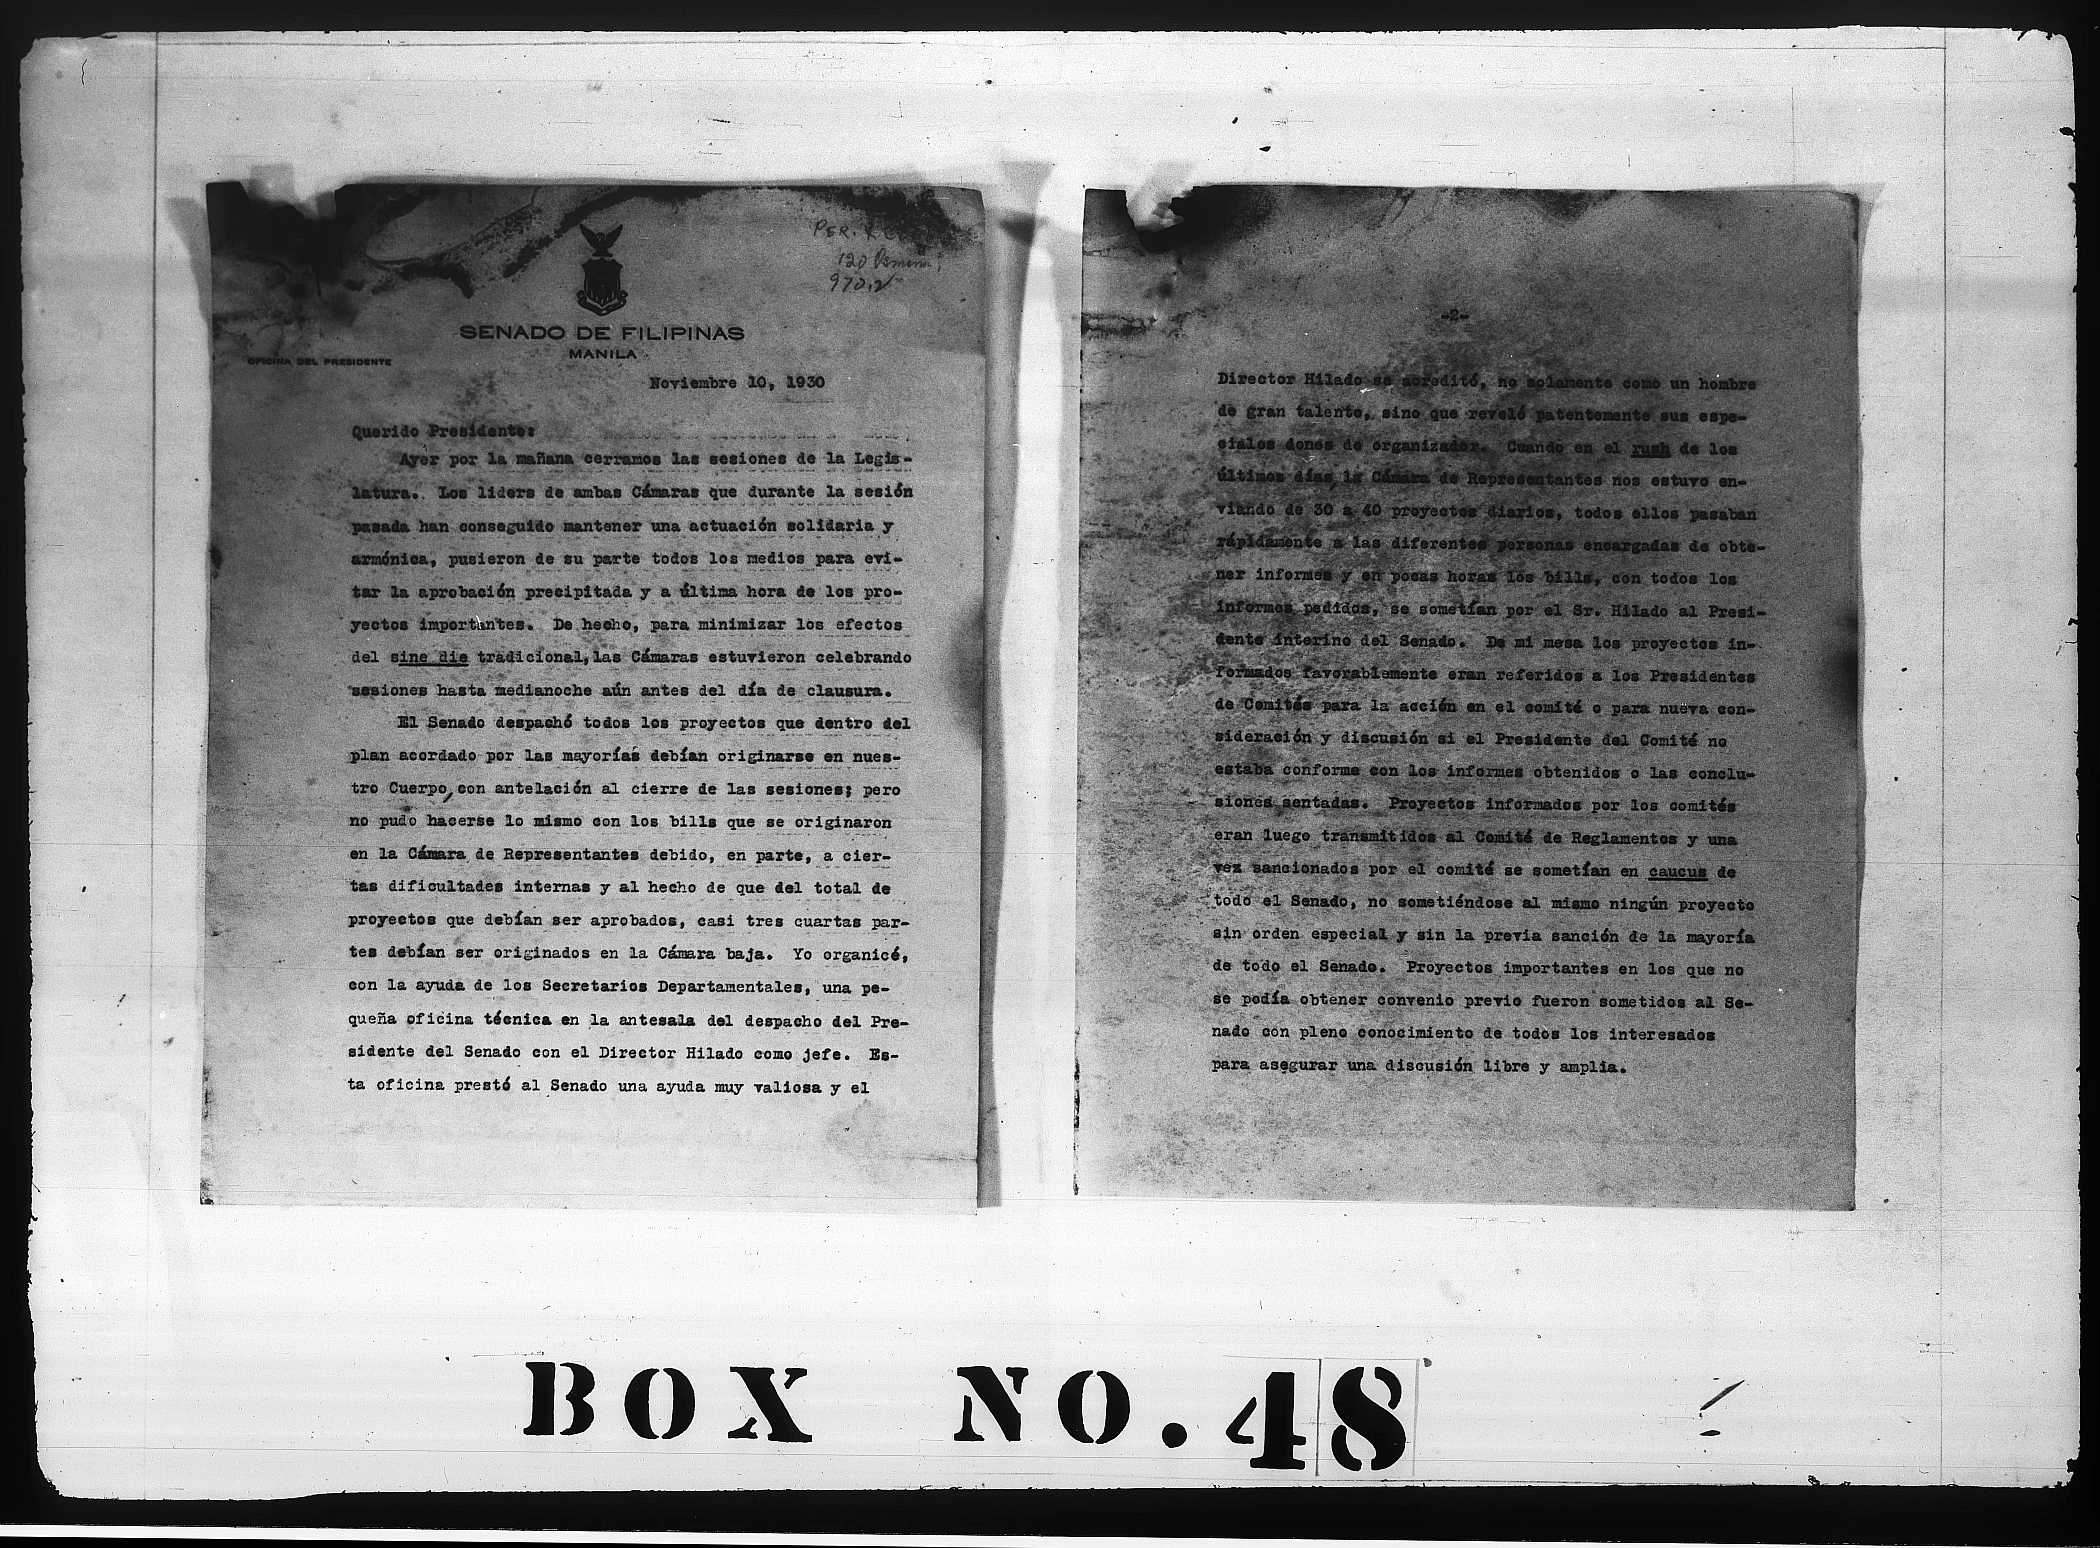 PER.
120
970.2
SENADO DE FILIPINAS
MANILA
OFICINA DEL PRESIDENTE
Noviembre 10, 1930
Querido Presidente:
Ayer por la mañana cerramos las sesiones de la Legis-
latura. Los liders de ambas Cámaras que durante la sesión
pasada han conseguido mantener una actuación solidaria y
armónica, pusieron de su parte todos los medios para evi-
tar la aprobación precipitada y a última hora de los pro-
yectos importantes. De hecho, para minimizar los efectos
del sine die tradicional, las Cámaras estuvieron celebrando
sesiones hasta medianoche aún antes del día de clausura.
El Senado despachó todos los proyectos que dentro del
plan acordado por las mayorías debían originarse en nues-
tro Cuerpo, con antelación al cierre de las sesiones; pero
no pudo hacerse lo mismo con los bills que se originaron
en la Cámara de Representantes debido, en parte, a cier-
tas dificultades internas y al hecho de que del total de
proyectos que debían ser aprobados, casi tres cuartas par-
tes debían ser originados en la Cámara baja. Yo organicé,
con la ayuda de los Secretarios Departamentales, una pe-
queña oficina técnica en la antesala del despacho del Pre-
sidente del Senado con el Director Hilado como jefe. Es-
ta oficina prestó al Senado una ayuda muy valiosa y el
-2-
Director Hilado se acreditó, no solamente como un hombre
de gran talento, sino que reveló patentemente sus espe-
ciales dones de organizador. Cuando en el rush de los
últimos días la Cámara de Representantes nos estuvo en-
viando de 30 a 40 proyectos diarios, todos ellos pasaban
rápidamente a las diferentes personas encargadas de obte-
ner informes y en pocas horas los bills, con todos los
informes pedidos, se sometían por el Sr. Hilado al Presi-
dente interino del Senado. De mi mesa los proyectos in-
formados favorablemente eran referidos a los Presidentes
de Comités para la acción en el comité o para nueva con-
sideración y discusión si el Presidente del Comité no
estaba conforme con los informes obtenidos o las conclu-
siones sentadas. Proyectos informados por los comités
eran luego transmitidos al Comité de Reglamentos y una
vez sancionados por el comité se sometían en caucus de
todo el Senado, no sometiéndose al mismo ningún proyecto
sin orden especial y sin la previa sanción de la mayoría
de todo el Senado. Proyectos importantes en los que no
se podía obtener convenio previo fueron sometidos al Se-
nado con pleno conocimiento de todos los interesados
para asegurar una discusión libre y amplia.
BOX NO. 48